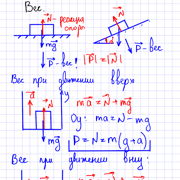 Вес
N - реакция
опоры
N
mg
P - вес
P - вес! |P| = |N|
mg
Вес при движении вверх
a
N
y
ma = N + mg
Oy: ma = N - mg
P = N = m(g+a)
mg
Вес при движении вниз: